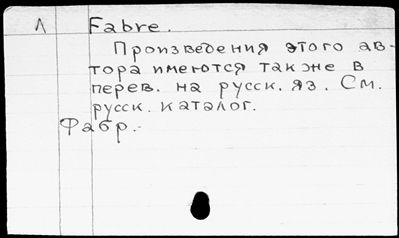 Λ Fabre.
Произведения этого ав-
тора имеются также в
перев. на русск. яз. См.
русск. каталог.
Фабр.